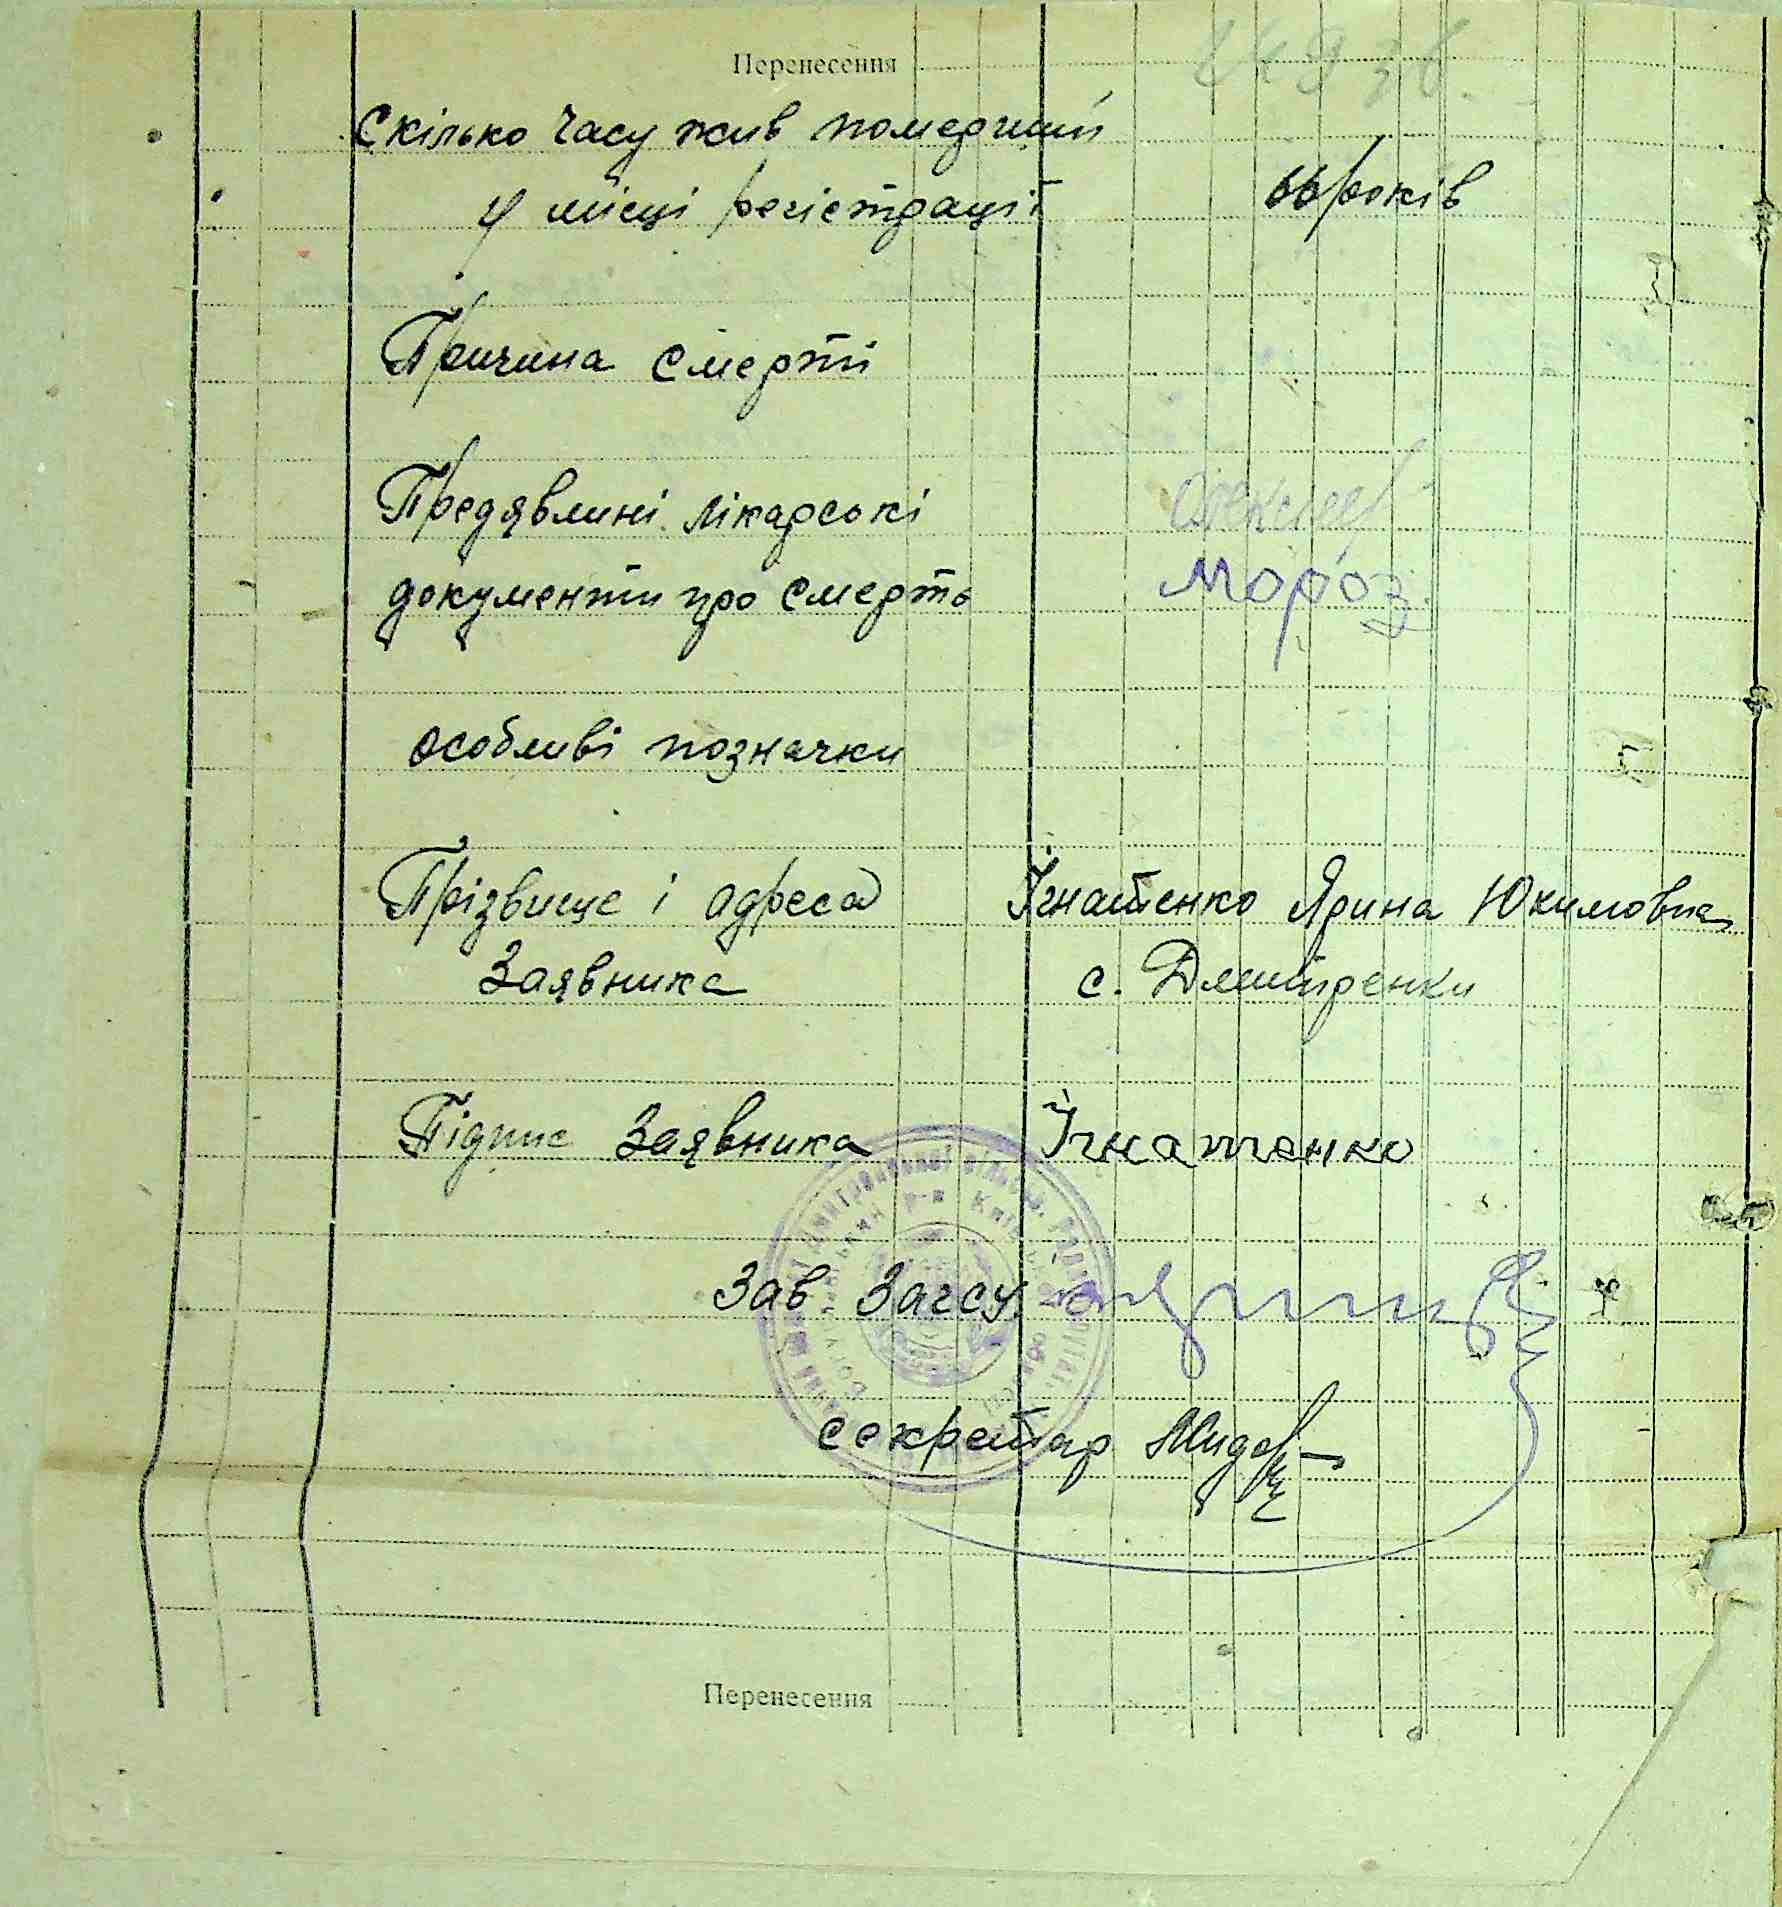 Перенесення
Скілько часу жив померший
у місці регістрації 66 років
Причина смерті
Предявлині лікарські
документи про смерть Мороз
особливі позначки
Прізвище і адреса Ігнатенко Ярина Юхимовна
Заявника с. Дмитренки
Підпис Заявника Ігнатенко
Зав Загсу
секретар
Перенесення